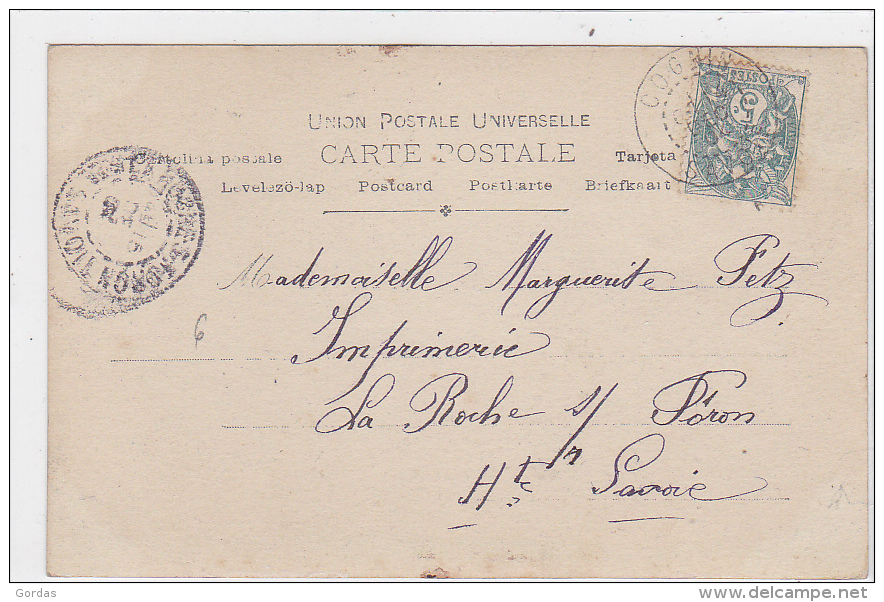 UNION POSTALE UNIVERSELLE
Cartolina postale CARTE POSTALE Tarjeta
Levelezö-lap Postcard Postkarte Briefkaart
COGNIN
POSTES
5
Mademoiselle Marguerite Fetz
Imprimerie
La Roche s/ Foron
Hte Savoie
6
Gordas
www.delcampe.net